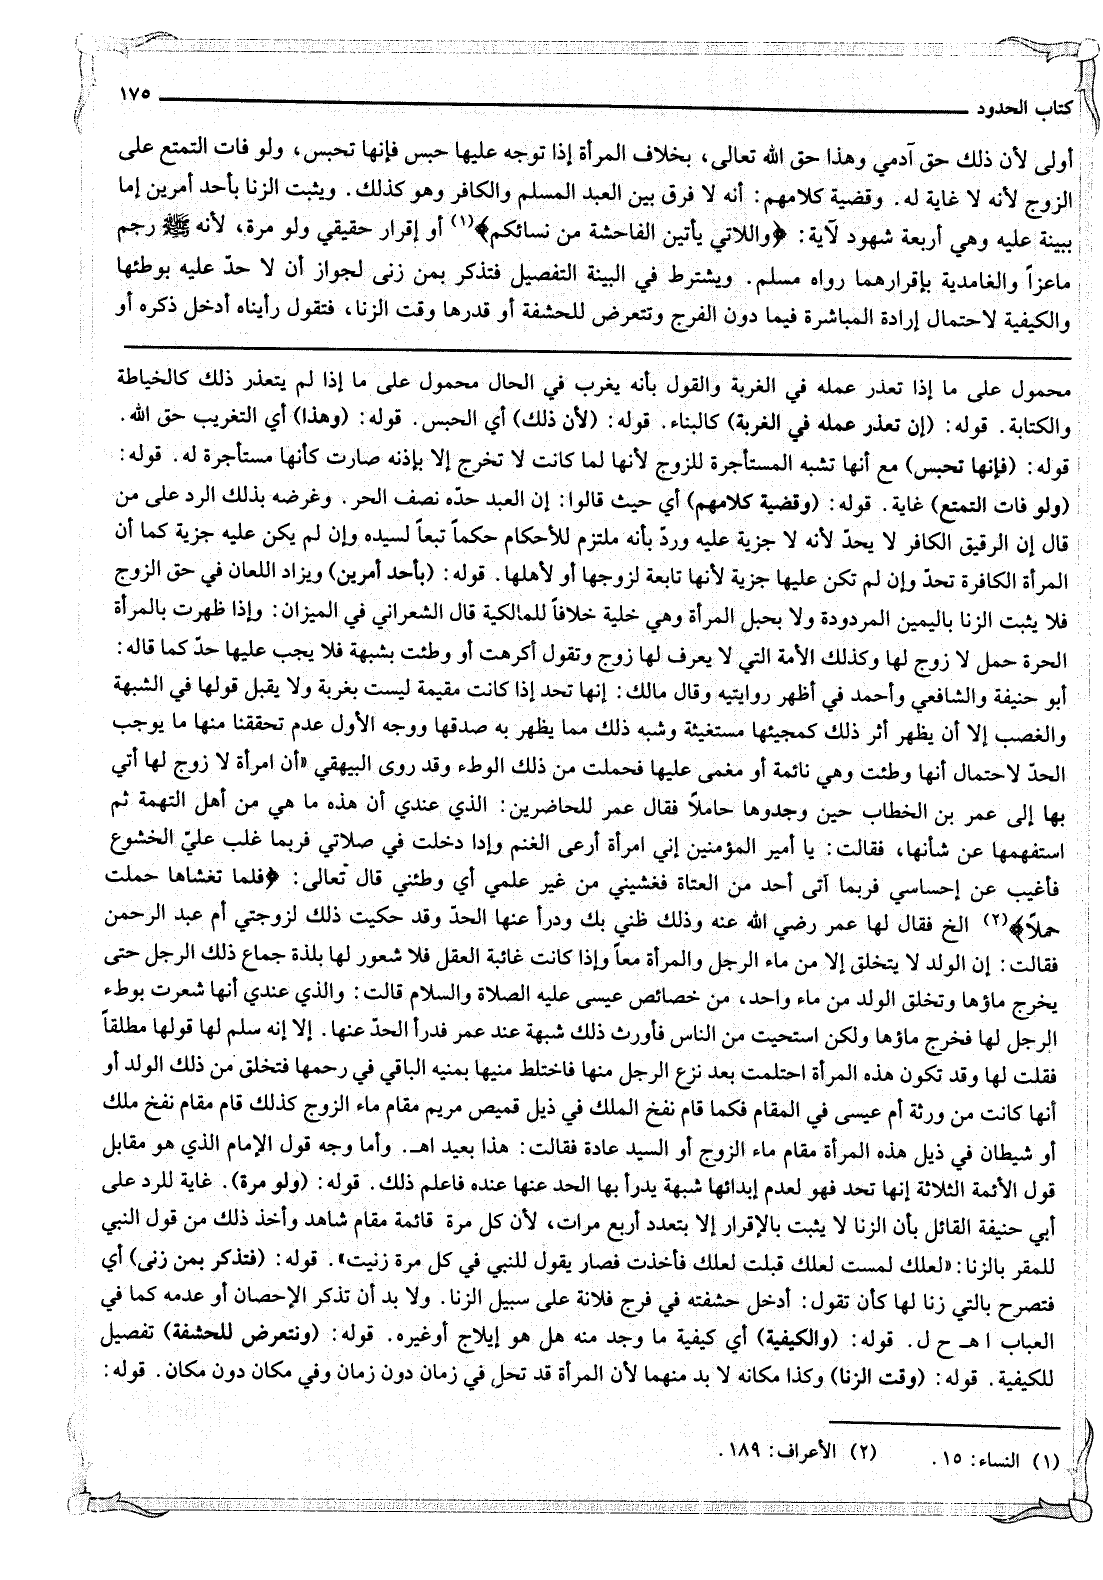 كتاب الحدود ١٧٥
أولى لأن ذلك حق آدمي وهذا حق الله تعالى، بخلاف المرأة إذا توجه عليها حبس فإنها تحبس، ولو فات التمتع على
الزوج لأنه لا غاية له. وقضية كلامهم: أنه لا فرق بين العبد المسلم والكافر وهو كذلك. ويثبت الزنا بأحد أمرين إما
ببينة عليه وهي أربعة شهود لآية: ﴿واللاتي يأتين الفاحشة من نسائكم﴾(١) أو إقرار حقيقي ولو مرة، لأنه ﷺ رجم
ماعزاً والغامدية بإقرارهما رواه مسلم. ويشترط في البينة التفصيل فتذكر بمن زنى لجواز أن لا حدّ عليه بوطئها
والكيفية لاحتمال إرادة المباشرة فيما دون الفرج وتتعرض للحشفة أو قدرها وقت الزنا، فتقول رأيناه أدخل ذكره أو
محمول على ما إذا تعذر عمله في الغربة والقول بأنه يغرب في الحال محمول على ما إذا لم يتعذر ذلك كالخياطة
والكتابة. قوله: (إن تعذر عمله في الغربة) كالبناء. قوله: (لأن ذلك) أي الحبس. قوله: (وهذا) أي التغريب حق الله.
قوله: (فإنها تحبس) مع أنها تشبه المستأجرة للزوج لأنها لما كانت لا تخرج إلا بإذنه صارت كأنها مستأجرة له. قوله:
(ولو فات التمتع) غاية. قوله: (وقضية كلامهم) أي حيث قالوا: إن العبد حدّه نصف الحر. وغرضه بذلك الرد على من
قال إن الرقيق الكافر لا يحدّ لأنه لا جزية عليه وردّ بأنه ملتزم للأحكام حكماً تبعاً لسيده وإن لم يكن عليه جزية كما أن
المرأة الكافرة تحدّ وإن لم تكن عليها جزية لأنها تابعة لزوجها أو لأهلها. قوله: (بأحد أمرين) ويزاد اللعان في حق الزوج
فلا يثبت الزنا باليمين المردودة ولا بحبل المرأة وهي خلية خلافاً للمالكية قال الشعراني في الميزان: وإذا ظهرت بالمرأة
الحرة حمل لا زوج لها وكذلك الأمة التي لا يعرف لها زوج وتقول أكرهت أو وطئت بشبهة فلا يجب عليها حدّ كما قاله:
أبو حنيفة والشافعي وأحمد في أظهر روايتيه وقال مالك: إنها تحد إذا كانت مقيمة ليست بغربة ولا يقبل قولها في الشبهة
والغصب إلا أن يظهر أثر ذلك كمجيئها مستغيثة وشبه ذلك مما يظهر به صدقها ووجه الأول عدم تحققنا منها ما يوجب
الحدّ لاحتمال أنها وطئت وهي نائمة أو مغمى عليها فحملت من ذلك الوطء وقد روى البيهقي «أن امرأة لا زوج لها أتي
بها إلى عمر بن الخطاب حين وجدوها حاملاً فقال عمر للحاضرين: الذي عندي أن هذه ما هي من أهل التهمة ثم
استفهمها عن شأنها، فقالت: يا أمير المؤمنين إني امرأة أرعى الغنم وإدا دخلت في صلاتي فربما غلب عليّ الخشوع
فأغيب عن إحساسي فربما آتى أحد من العتاة فغشيني من غير علمي أي وطئني قال تعالى: ﴿فلما تغشاها حملت
حملاً﴾(٢) الخ فقال لها عمر رضي الله عنه وذلك ظني بك ودرأ عنها الحدّ وقد حكيت ذلك لزوجتي أم عبد الرحمن
فقالت: إن الولد لا يتخلق إلا من ماء الرجل والمرأة معاً وإذا كانت غائبة العقل فلا شعور لها بلذة جماع ذلك الرجل حتى
يخرج ماؤها وتخلق الولد من ماء واحد، من خصائص عيسى عليه الصلاة والسلام قالت: والذي عندي أنها شعرت بوطء
الرجل لها فخرج ماؤها ولكن استحيت من الناس فأورث ذلك شبهة عند عمر فدرأ الحدّ عنها. إلا إنه سلم لها قولها مطلقاً
فقلت لها وقد تكون هذه المرأة احتلمت بعد نزع الرجل منها فاختلط منيها بمنيه الباقي في رحمها فتخلق من ذلك الولد أو
أنها كانت من ورثة أم عيسى في المقام فكما قام نفخ الملك في ذيل قميص مريم مقام ماء الزوج كذلك قام مقام نفخ ملك
أو شيطان في ذيل هذه المرأة مقام ماء الزوج أو السيد عادة فقالت: هذا بعيد اهـ. وأما وجه قول الإمام الذي هو مقابل
قول الأئمة الثلاثة إنها تحد فهو لعدم إبدائها شبهة يدرأ بها الحد عنها عنده فاعلم ذلك. قوله: (ولو مرة). غاية للرد على
أبي حنيفة القائل بأن الزنا لا يثبت بالإقرار إلا بتعدد أربع مرات، لأن كل مرة قائمة مقام شاهد وأخذ ذلك من قول النبي
للمقر بالزنا: «لعلك لمست لعلك قبلت لعلك فأخذت فصار يقول للنبي في كل مرة زنيت». قوله: (فتذكر بمن زنى) أي
فتصرح بالتي زنا لها كأن تقول: أدخل حشفته في فرج فلانة على سبيل الزنا. ولا بد أن تذكر الإحصان أو عدمه كما في
العباب اهـ ح ل. قوله: (والكيفية) أي كيفية ما وجد منه هل هو إيلاج أوغيره. قوله: (ونتعرض للحشفة) تفصيل
للكيفية. قوله: (وقت الزنا) وكذا مكانه لا بد منهما لأن المرأة قد تحل في زمان دون زمان وفي مكان دون مكان. قوله:
(١) النساء: ١٥. (٢) الأعراف: ١٨٩.